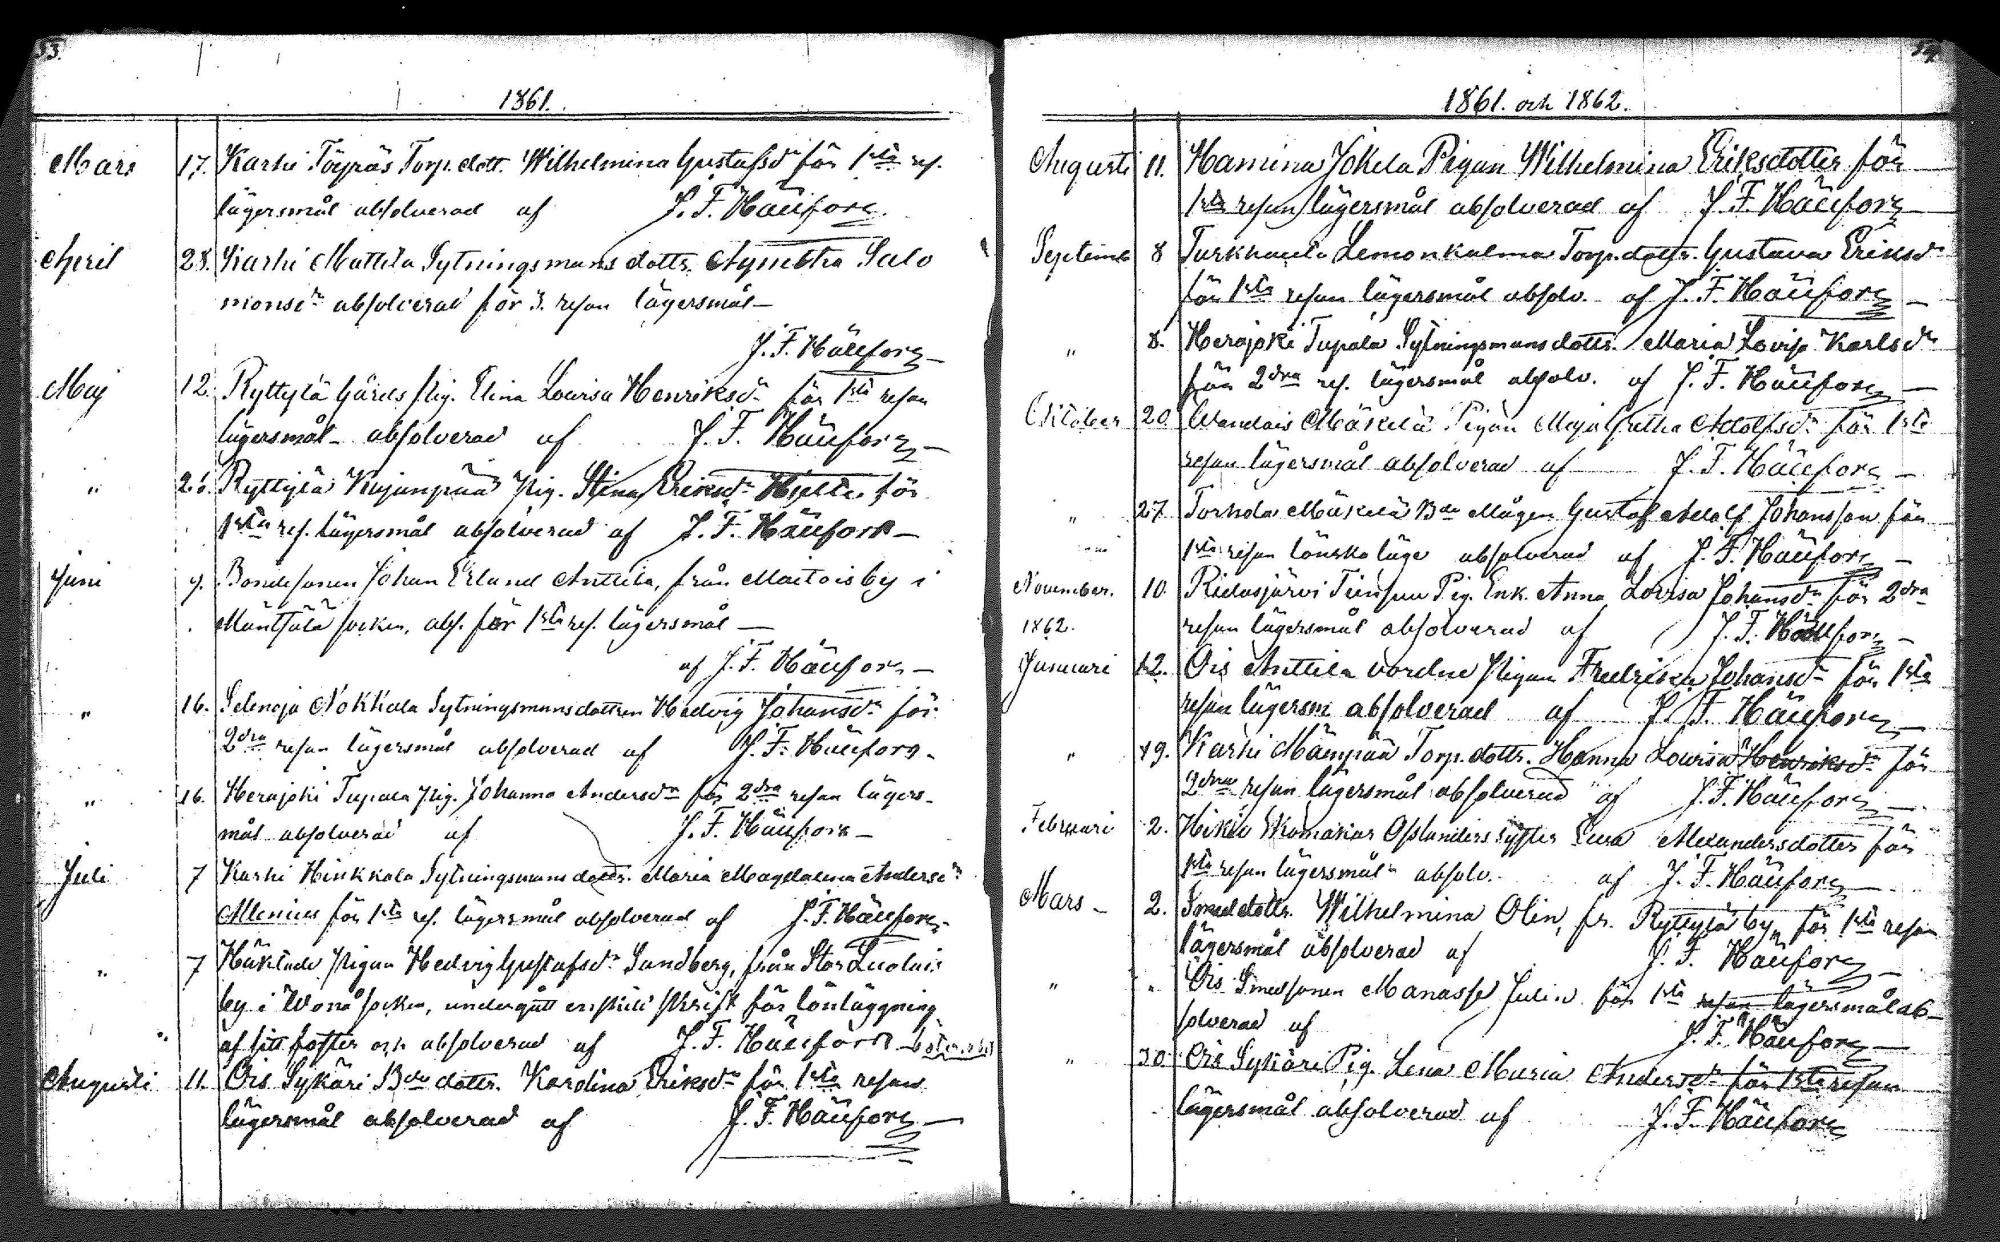 53.
1861.
Mars 17. Karhi Töyräs Torp. dott. Wilhelmina Gustafsdr för 1sta res.
lägersmål absolverad af J. F. Hällfors
April 28. Karhi Mattila Sytningsmans dottr. Agnetha Salo
monsdr absolverad för 3. resan lägersmål
J. F. Hällfors
Maj 12. Ryttylä Gårds Pig. Elina Lovisa Henriksdr för 1sta resan
lägersmål absolverad af J. F. Hällfors
" 26. Ryttylä Kujanpää Pig. Stina Eriksdr för
1sta res. lägersmål absolverad af J. F. Hällfors
Juni 9. Bondesonen Johan Erland Anttila, från Maitois by i
Mäntsälä socken, abs. för 1sta res. lägersmål
af J. F. Hällfors
" 16. Selenoja Nokkala Sytningsmansdottren Hedvig Johansdr för
2dra resan lägersmål absolverad af J. F. Hällfors
" 16. Herajoki Tupala Pig. Johanna Andersdr för 2dra resan lägers-
mål absolverad af J. F. Hällfors
Juli 7 Karhi Hinkkala Sytningsmans dottr. Maria Magdalena Andersdr
Alenius för 1sta res. lägersmål absolverad af J. F. Hällfors
" 7 Pigan Hedvig Gustafsdr Sundberg, från Stor
by i Wånå socken, undergått enskilt skrift för lönläggning
af sitt foster och absolverad af J. F. Hällfors
Augusti 11. Ois Sykäri Bde dottr. Karolina Eriksdr för 1sta resan
lägersmål absolverad af J. F. Hällfors
54.
1861. och 1862.
Augusti 11. Hamina Jokela Pigan Wilhelmina Eriksdotter för
1sta resan lägersmål absolverad af J. F. Hällfors
Septemb 8 Turkhauta Lemonkulma Torp. dottr. Gustava Eriksdr
för 1sta resan lägersmål absolv. af J. F. Hällfors
" 8. Herajoki Tupala Sytningsmans dottr. Maria Lovisa Karlsdr
för 2dra res. lägersmål absolv. af J. F. Hällfors
October 20 Mäkelä Pigan Maja Gretha Adolfsdr för 1sta
resan lägersmål absolverad af J. F. Hällfors
" 27. Torhola Mäkelä Bde Mågen Gustaf Adolf Johansson för
1sta resan lönska läge absolverad af J. F. Hällfors
November. 10. Ridasjärvi Pig. Enk. Anna Lovisa Johansdr för 2dra
1862. resan lägersmål absolverad af J. F. Hällfors
Januari 12. Ois Anttila Pigan Fredrika Johansdr för 1sta
resan lägersm absolverad af J. F. Hällfors
" 19. Karhi Mäenpää Torp. dottr. Hanna Lovisa Henriksdr för
2dra resan lägersmål absolverad af J. F. Hällfors
Februari 2. Hikiä syster Alexandersdotter för
1sta resan lägersmål absolv. af J. F. Hällfors
Mars 2. Smed dottr. Wilhelmina Olin, fr. Ryttylä by, för 1sta resan
lägersmål absolverad af J. F. Hällfors
" " Ois Smedsonen Manasse Julin för 1sta resan lägersmål ab-
solverad af J. F. Hällfors
" 30. Ois Sykäri Pig. Lena Maria Andersdr för 1sta resan
lägersmål absolverad af J. F. Hällfors